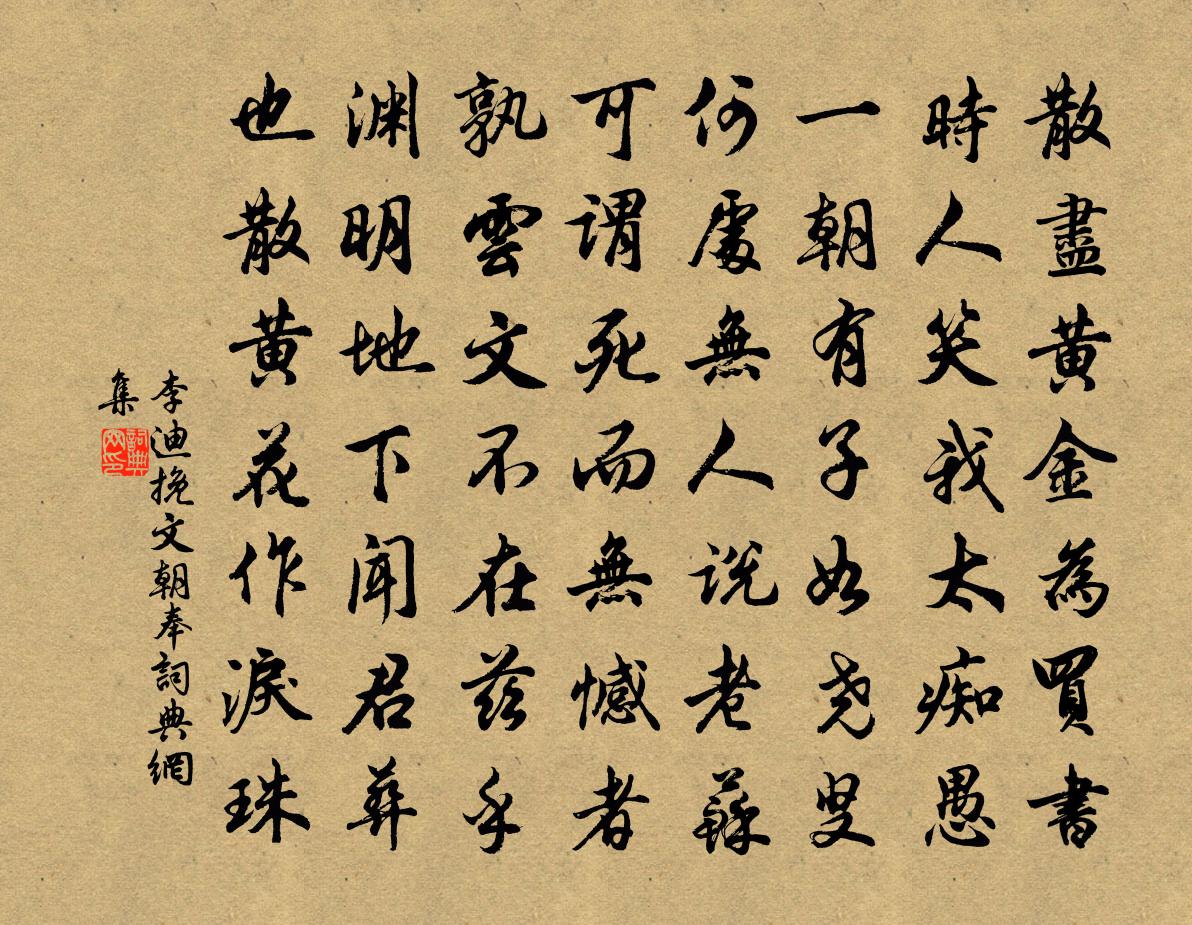 散盡黄金為買書
時人笑我太痴愚
一朝有子如尧叟
何處無人説老蘇
可謂死而無憾者
孰雲文不在兹乎
渊明地下聞君葬
也散黄花作淚珠
李迪挽文朝奉詞典網
集
詞典
网印